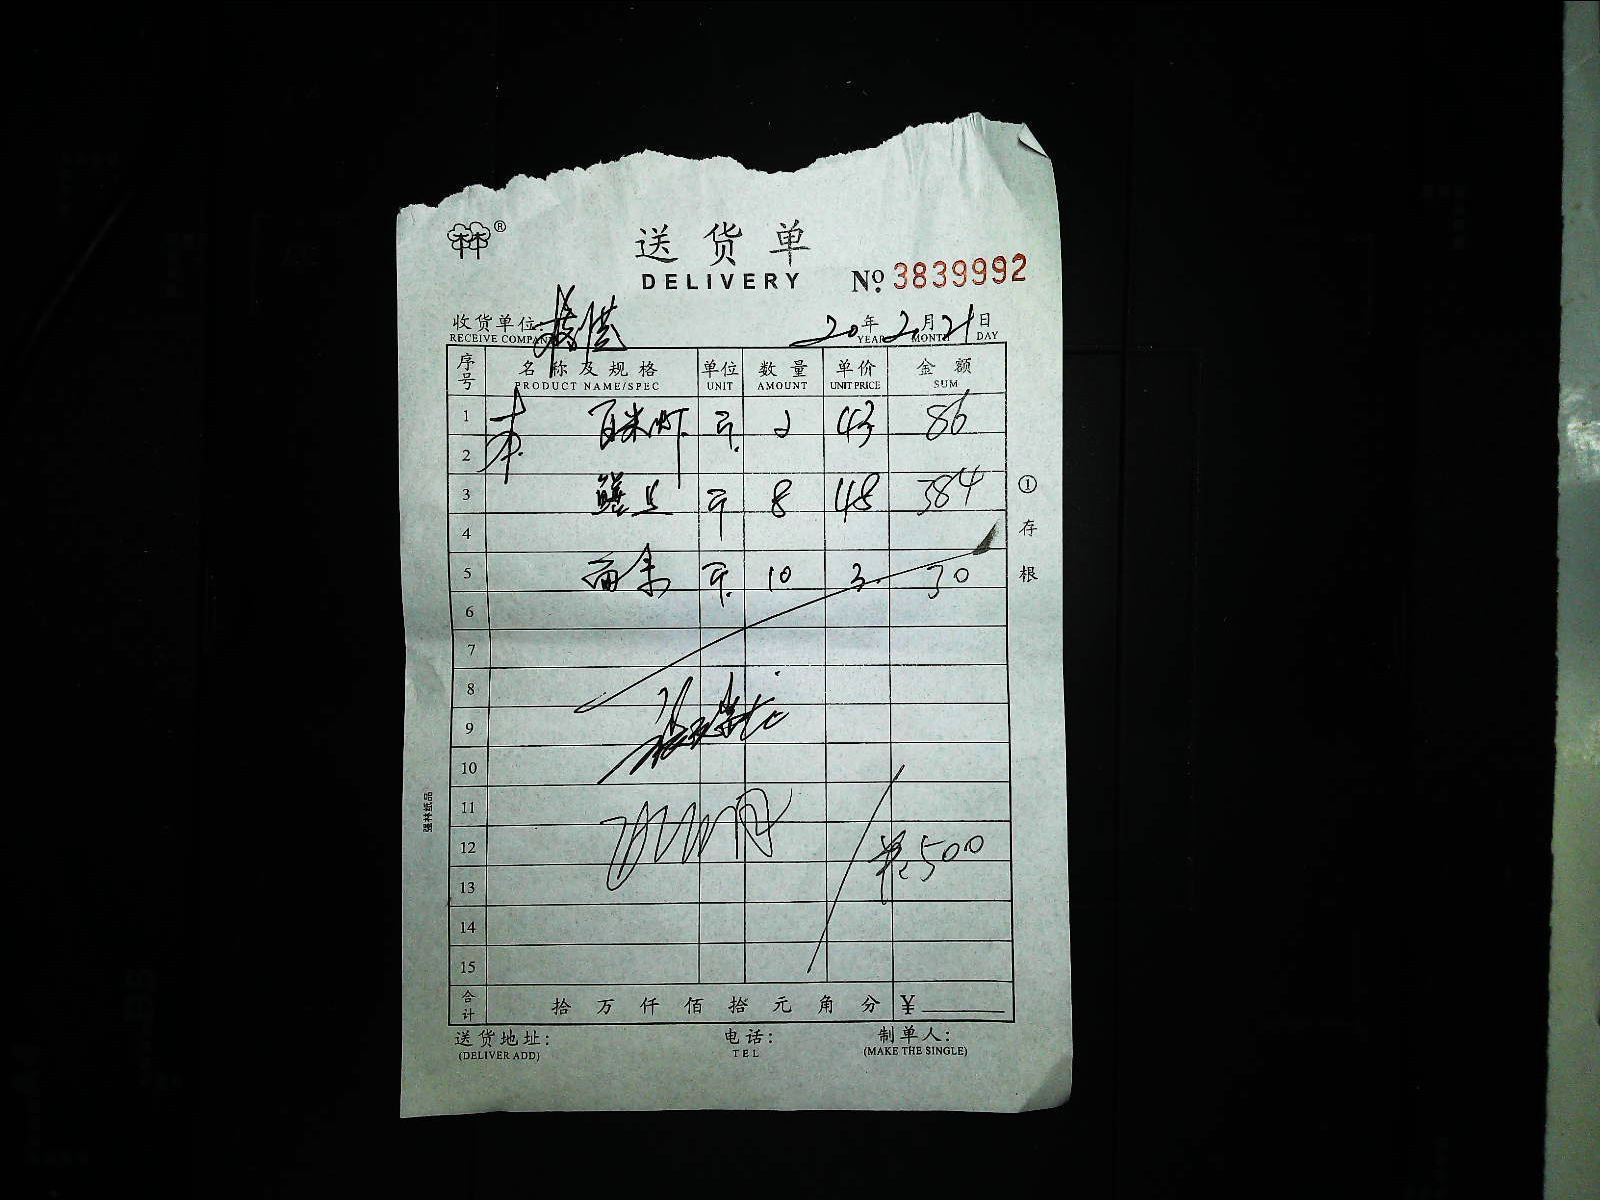 林®
送货单
DELIVERY
No. 3839992
收货单位:
RECEIVE COMPAN
20年2月21日
YEAR MONTH DAY
序号 名称及规格 单位 数量 单价 金额
PRODUCT NAME/SPEC UNIT AMOUNT UNIT PRICE SUM
1 斤 2 43 86
2
3 斤 8 48 384
4
5 斤 10 3 30
6
7
8
9
10
11
12 500
13
14
15
合计 拾 万 仟 佰 拾 元 角 分 ¥
送货地址: 电话: 制单人:
(DELIVER ADD) TEL (MAKE THE SINGLE)
①存根
强林纸品